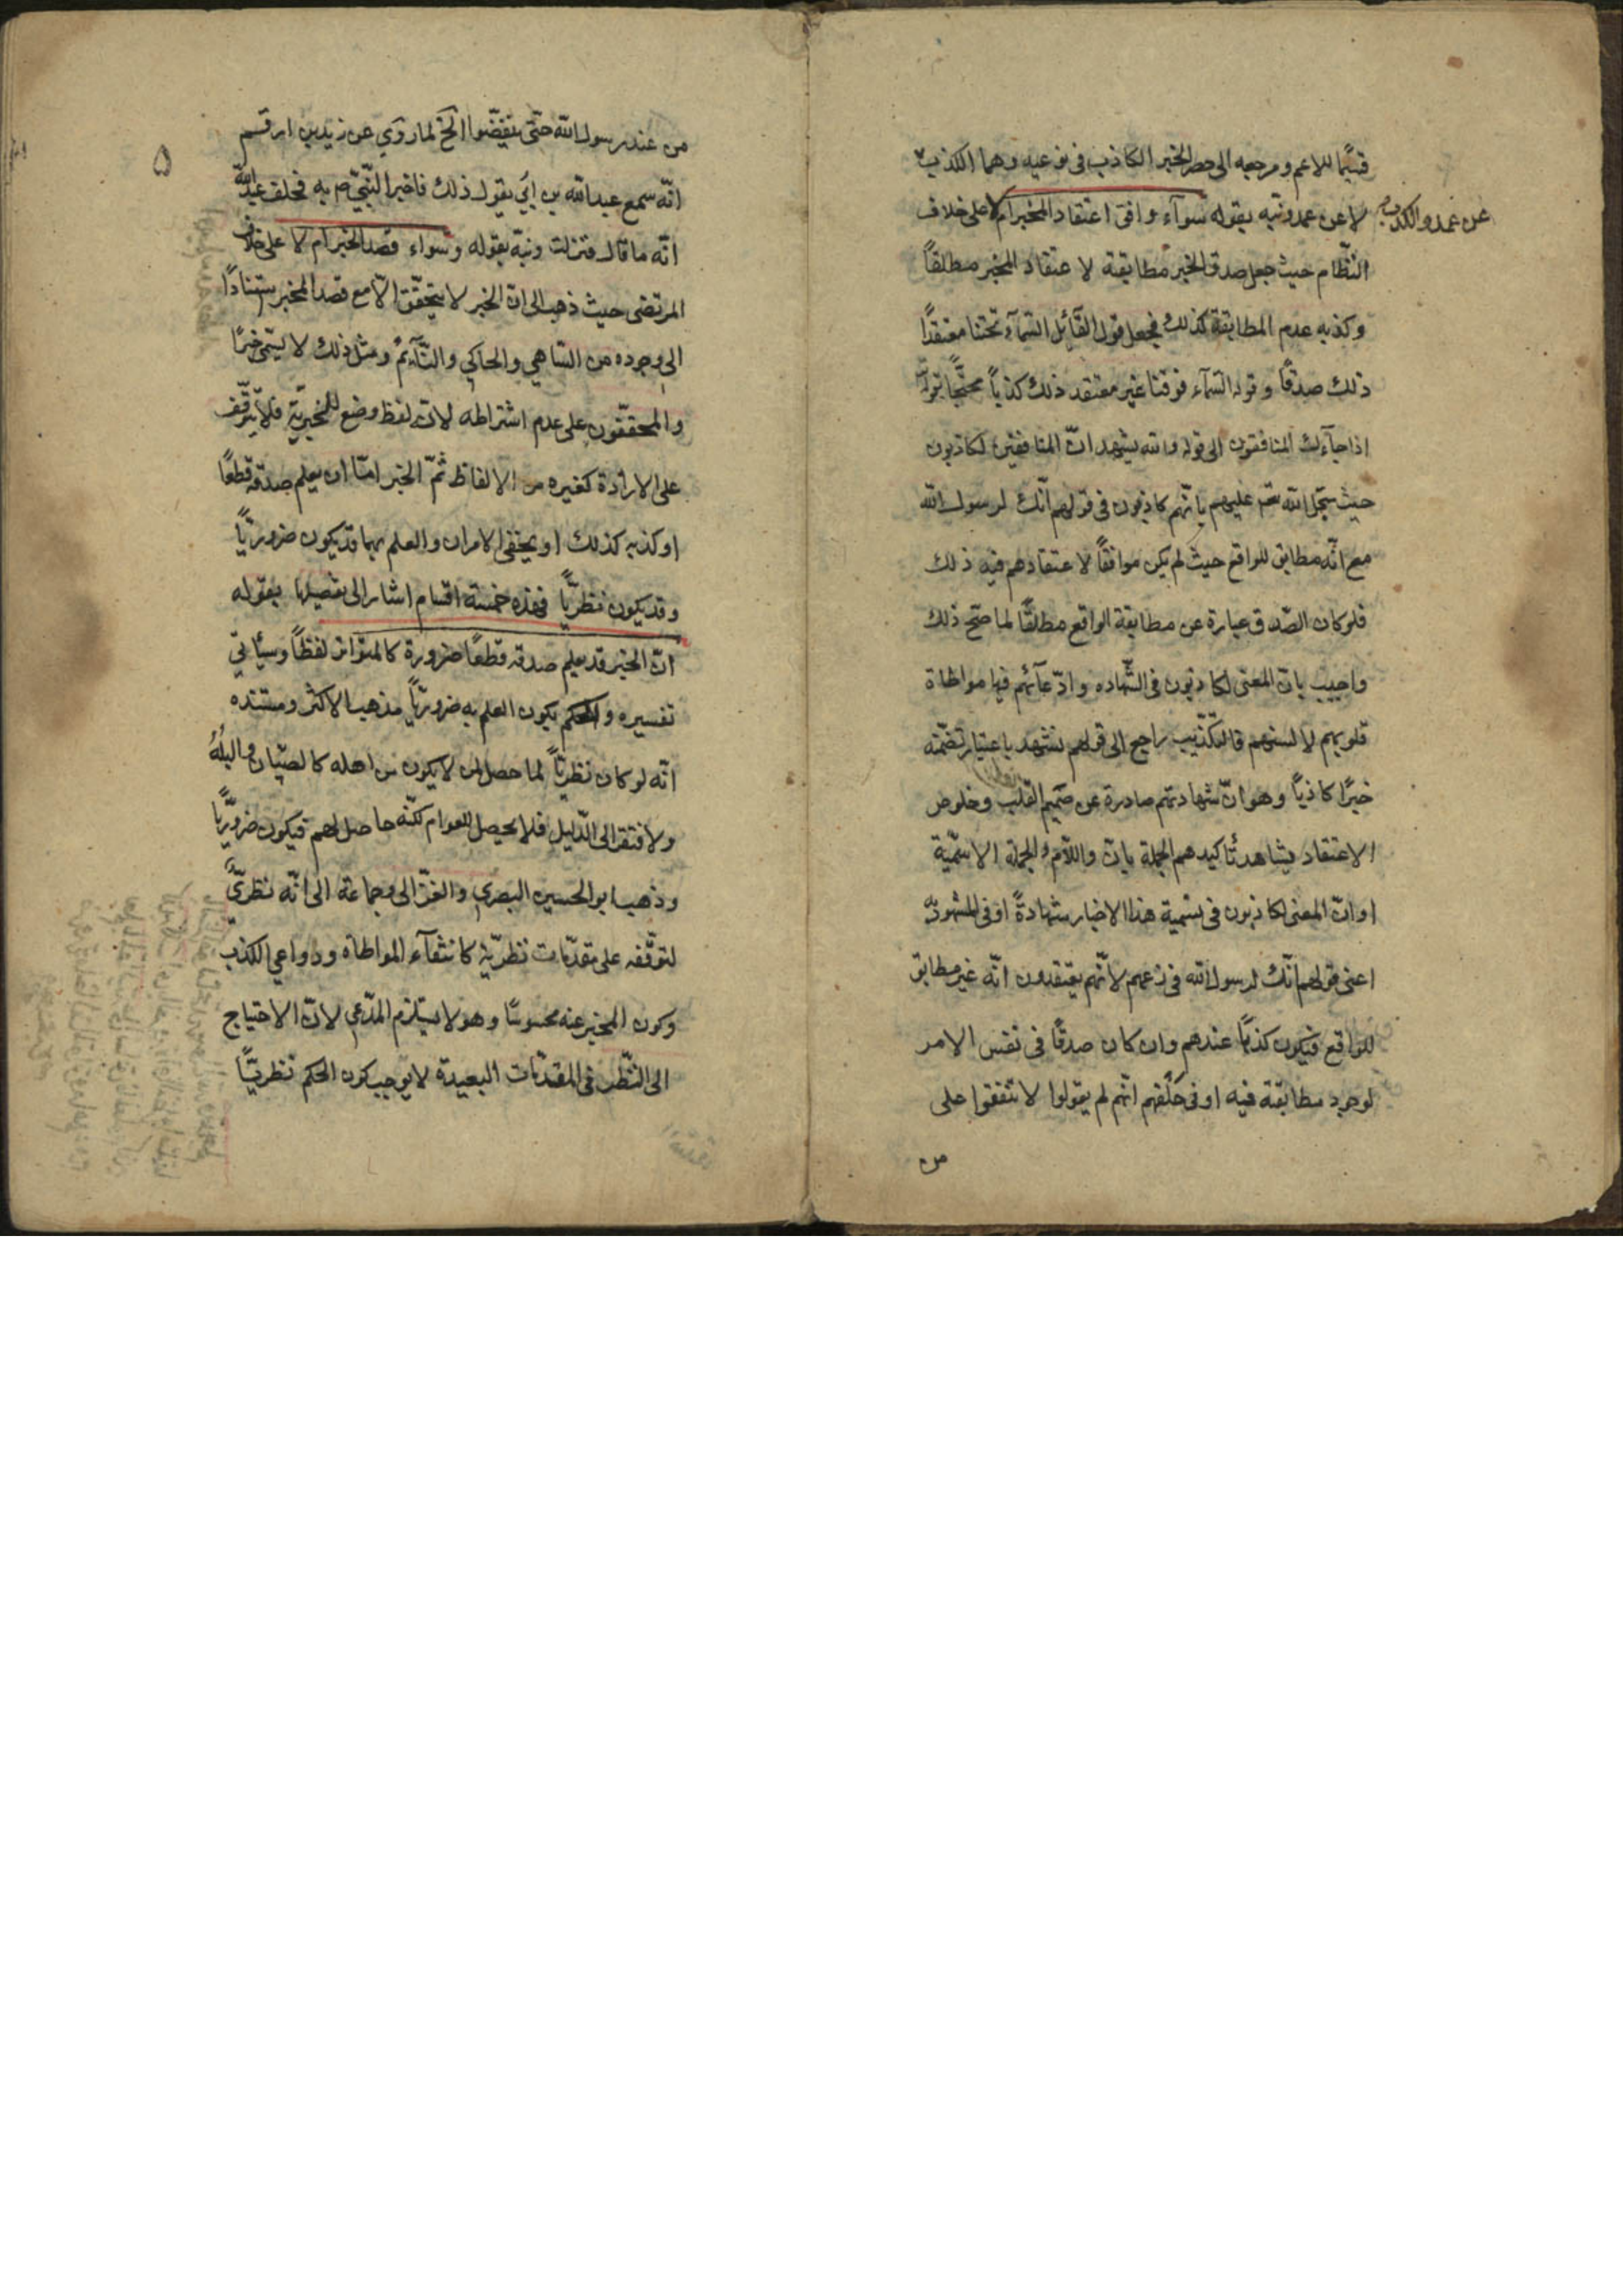 قسيما للاعم ومرجعه الى حصر الخبر الكاذب في نوعيه وهما الكذب
عن عمد والكذب
لا عن عمد ونبه بقوله سوآء وافق اعتقاد المخبر ام لا على خلاف
النظّام حيث جعل صدق الخبر مطابقته لاعتقاد المخبر مطلقاً
وكذبه عدم المطابقة كذلك فجعل قول القآئل السّمآء تحتنا معتقدًا
ذلك صدقاً وقوله السّمآء فوقنا غير معتقد ذلك كذباً محتجًّا بقوله
اذا جآءك المنافقون الى قوله والله يشهد انّ المنافقين لكاذبون
حيث سجّل الله تعم عليهم بانّهم كاذبون في قولهم انّك لرسول الله
مع انّه مطابق للواقع حيث لم يكن موافقاً لاعتقادهم فيه ذلك
فلو كان الصّدق عبارة عن مطابقة الواقع مطلقًا لما صحّ ذلك
واجيب بانّ المعنى لكاذبون في الشّهاده وادّعآئهم فيها مواطاة
قلوبهم لالسنتهم فالتّكذيب راجع الى قولهم نشهد باعتبار تضمّنه
خبرًا كاذباً وهو انّ شهادتهم صادرة عن صميم القلب وخلوص
الاعتقاد بشاهد تأكيدهم الجملة بانّ واللّام والجملة الاسميّة
او انّ المعنى لكاذبون في تسمية هذا الاخبار شهادةً او في المشهود به
اعنى قولهم انّك لرسول الله في زعمهم لانّهم يعتقدون انّه غير مطابق
للواقع فيكون كذبًا عندهم وان كان صدقًا في نفس الامر
لوجود مطابقته فيه او في حَلْفهم انّهم لم يقولوا لا تنفقوا على
من
۵
من عند رسول الله حتّى ينفضّوا الخ لما روي عن زيد بن ارقم
انّه سمع عبد الله بن ابي يقول ذلك فاخبر النّبيّ ص به فحلف عبد الله
انّه ما قال فنزلت ونبّه بقوله وسواء قصد الخبر ام لا على خلاف
المرتضى حيث ذهب الى انّ الخبر لا يتحقّق الّا مع قصد المخبر استنادًا
الى وجوده من السّاهي والحاكي والنّآئم ومثل ذلك لا يسمّى خبرًا
والمحقّقون على عدم اشتراطه لانّه لفظ وضع للخبريّة فلا يتوقّف
على الارادة كغيره من الالفاظ ثمّ الخبر امّا ان يعلم صدقه قطعًا
او كذبه كذلك او يخفى الامران والعلم بهما قد يكون ضروريّاً
وقد يكون نظريّاً فهذه خمسة اقسام اشار الى تفصيلها بقوله
انّ الخبر قد يعلم صدقه قطعًا ضرورة كالمتواتر لفظاً وسيأتي
تفسيره والحكم بكون العلم به ضروريّاً مذهب الاكثر ومستنده
انّه لو كان نظريّاً لما حصل لمن لا يكون من اهله كالصّبيان والبُلْهُ
ولافتقر الى الدّليل فلا يحصل للعوام لكنّه حاصل لهم فيكون ضروريًّا
وذهب ابو الحسين البصري والغزّالي وجماعة الى انّه نظريٌّ
لتوقّفه على مقدّمات نظريّة كانتفآء المواطاه ودواعي الكذب
وكون المخبر عنه محسوسًا وهو لا يستلزم المدّعى لانّ الاحتياج
الى النّظر في المقدّمات البعيدة لا يوجب كون الحكم نظريًّا